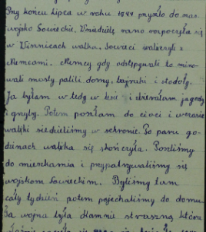 Przy końcu lipca w roku 1944 przyszło do nas
wojsko Sowieckie. Uniedzielę rano rozpoczęła się
w Winnicach walka. Sowieci walczyli z
Niemcami. Niemcy gdy odstępowali to mio-
wali mosty palili domy, budynki i stodoły.
Ja byłam w tedy w lesie i zbierałam jagody
i grzyby. Potem poszłam do cioci i wczasie
walki siedzieliśmy w schronie. Po paru go-
dzinach walka się skończyła. Poszliśmy
do mieszkania i przypatrywaliśmy się
wojskom sowieckim. Byliśmy tam
cały tydzień potem pojechaliśmy do domu.
Ta wojna była dla mnie straszną która